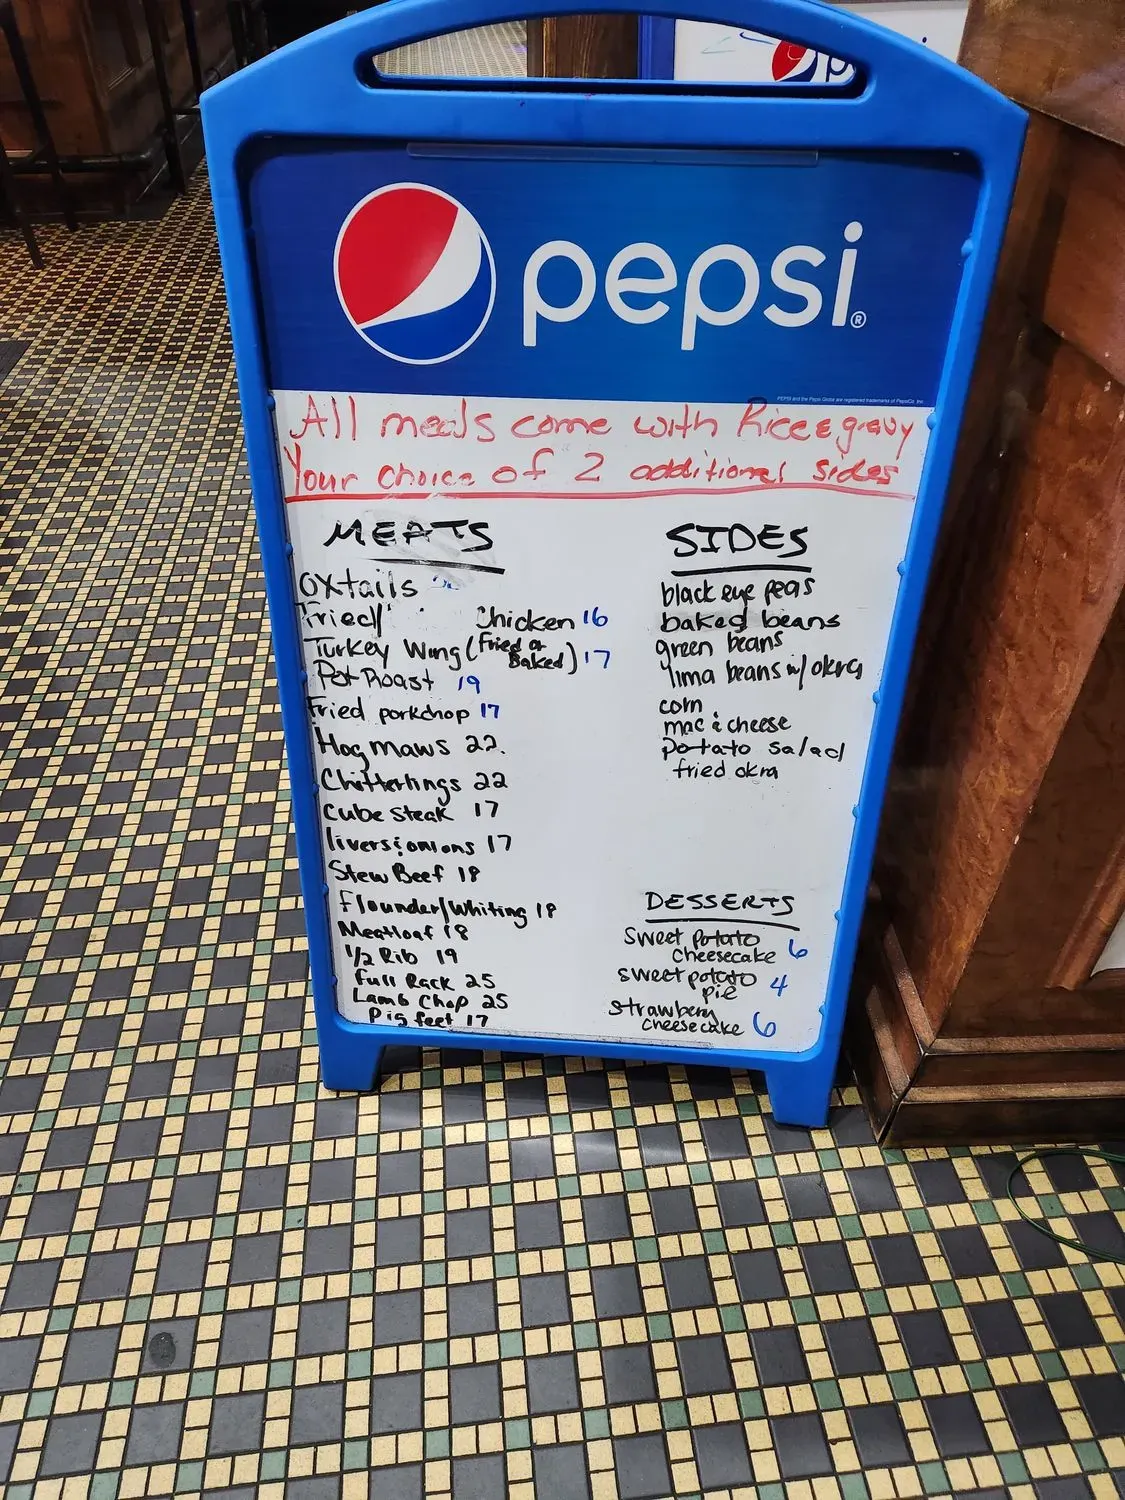 pepsi®
PEPSI and the Pepsi Globe are registered trademarks of PepsiCo, Inc.
All meals come with Rice & gravy
Your choice of 2 additional sides
MEATS
oxtails
Fried/ Chicken 16
Turkey Wing (Fried or Baked) 17
Pot Roast 19
Fried porkchop 17
Hog maws 22.
Chitterlings 22
Cube Steak 17
livers & onions 17
Stew Beef 18
Flounder/Whiting 18
Meatloaf 18
1/2 Rib 19
Full Rack 25
Lamb Chop 25
Pig feet 17
SIDES
black eye peas
baked beans
green beans
lima beans w/ okra
corn
mac & cheese
potato salad
fried okra
DESSERTS
sweet potato
cheesecake 6
sweet potato
pie 4
strawberry
cheesecake 6